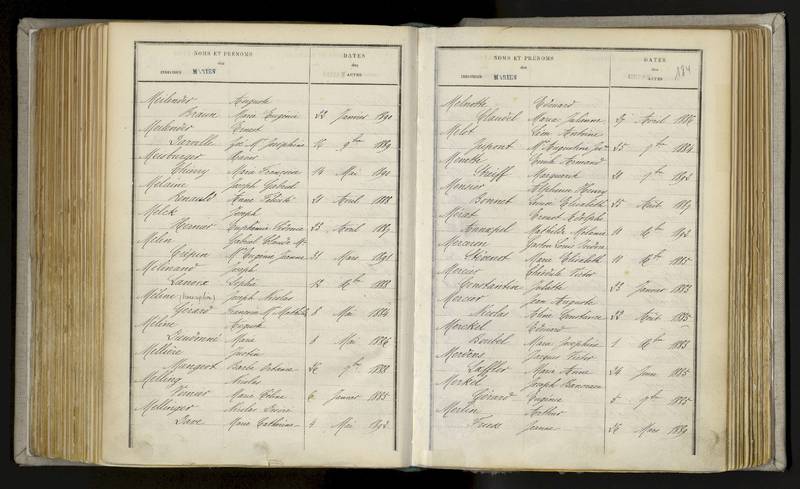 NOMS ET PRÉNOMS
des
INDIVIDUS MARIÉS
DATES
des
ACTES
Meilender Auguste
Braun Marie Eugénie 22 Janvier 1890
Meilender Ernest
Darville Marie Joséphine 16 9bre 1889
Meisburger Xavier
Thierry Marie Françoise 14 Mai 1890
Melaine Joseph Gabriel
Renauld Anne Félicité 21 Avril 1888
Melck Joseph
Euphémie 23 Avril 1889
Melin Gabriel Claude
Crépin Mie Eugénie Jeanne 31 Mars 1891
Melinand Joseph
Lanoix Sophie 12 Xbre 1888
Méline Joseph Nicolas
Gérard Françoise Mie Mathilde 8 Mai 1884
Méline Auguste
Marie 8 Mai 1886
Mellière Justin
Mangeot Barbe 26 9bre 1888
Melling Nicolas
Marie Céline 6 Janvier 1885
Mellinger Nicolas
Dave Marie Catherine 4 Mai 1892
NOMS ET PRÉNOMS
des
INDIVIDUS MARIÉS
DATES
des
ACTES
184
Melnotte Edouard
Claudel Marie Julienne 29 Avril 1886
Melot Léon Antoine
Dupont Mie Augustine 25 9bre 1884
Menette Emile Armand
Streiff Marguerite 21 9bre 1892
Alphonse Henry
Bonnet Louise Elisabeth 25 Août 1889
Mérat Ernest Adolphe
Annapel Mathilde Mélanie 10 Xbre 1892
Gaston Louis
Marie Elisabeth 10 Xbre 1885
Mercier Victor
Constantin Juliette 23 Janvier 1883
Mercier Jean Auguste
Nicolas Aline Constance 22 Août 1885
Merckel Edouard
Marie Joséphine 1 Xbre 1883
Merdens Jacques Victor
Laffler Marie Anne 24 Juin 1885
Merkel Joseph
Gérard Eugénie 5 9bre 1885
Merlin Arthur
Jeanne 26 Mars 1889